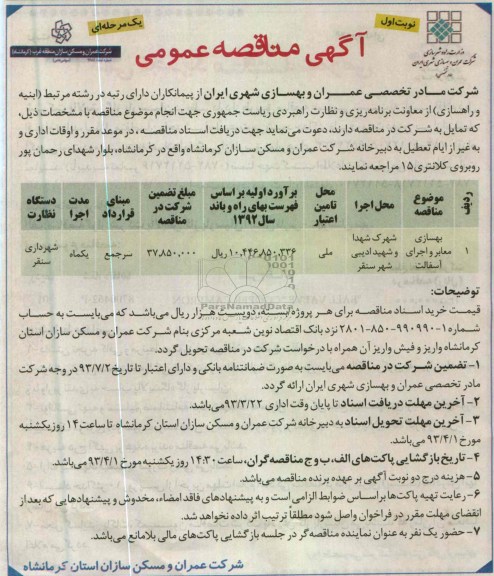 نوبت اول
یک مرحله‌ای
آگهی مناقصه عمومی
شرکت عمران و مسکن سازان منطقه غرب (کرمانشاه)
شرکت مادر تخصصی عمران و بهسازی شهری ایران از پیمانکاران دارای رتبه در رشته مرتبط (ابنیه
و راهسازی) از معاونت برنامه ریزی و نظارت راهبردی ریاست جمهوری جهت انجام موضوع مناقصه با مشخصات ذیل،
که تمایل به شرکت در مناقصه دارند، دعوت می‌نماید جهت دریافت اسناد مناقصه، در موعد مقرر و اوقات اداری و
به غیر از ایام تعطیل به دبیرخانه شرکت عمران و مسکن سازان کرمانشاه واقع در کرمانشاه، بلوار شهدای رحمان پور
روبروی کلانتری ۱۵ مراجعه نمایند.
ردیف
موضوع مناقصه
محل اجرا
محل تامین اعتبار
برآورد اولیه بر اساس فهرست بهای راه و باند سال ۱۳۹۲
مبلغ تضمین شرکت در مناقصه
مبنای قرارداد
مدت اجرا
دستگاه نظارت
۱
بهسازی معابر و اجرای آسفالت
شهرک شهدا و شهید ادیبی شهر سنقر
ملی
۱۰,۴۴۶,۸۵۰,۳۳۶ ریال
۳۷,۸۵۰,۰۰۰
سرجمع
یکماه
شهرداری سنقر
ParsNamadData
توضیحات:
قیمت خرید اسناد مناقصه برای هر پروژه/بسته، دویست هزار ریال می‌باشد که می‌بایست به حساب
شماره ۱-۹۹۰۹۹۰-۸۵۰-۲۸۰۱ نزد بانک اقتصاد نوین شعبه مرکزی بنام شرکت عمران و مسکن سازان استان
کرمانشاه واریز و فیش واریز آن همراه با درخواست شرکت در مناقصه تحویل گردد.
۱- تضمین شرکت در مناقصه می‌بایست به صورت ضمانتنامه بانکی و دارای اعتبار تا تاریخ ۹۳/۷/۲ در وجه شرکت
مادر تخصصی عمران و بهسازی شهری ایران ارائه گردد.
۲- آخرین مهلت دریافت اسناد تا پایان وقت اداری ۹۳/۳/۲۲ می‌باشد.
۳- آخرین مهلت تحویل اسناد به دبیرخانه شرکت عمران و مسکن سازان استان کرمانشاه تا ساعت ۱۴ روز یکشنبه
مورخ ۹۳/۴/۱ می‌باشد.
۴- تاریخ بازگشایی پاکت‌های الف، ب و ج مناقصه گران، ساعت ۱۴:۳۰ روز یکشنبه مورخ ۹۳/۴/۱ می‌باشد.
۵- هزینه درج دو نوبت آگهی بر عهده برنده مناقصه می‌باشد.
۶- رعایت تهیه پاکت‌ها بر اساس ضوابط الزامی است و به پیشنهادهای فاقد امضاء، مخدوش و پیشنهادهایی که بعد از
انقضای مهلت مقرر در فراخوان واصل شود مطلقاً ترتیب اثر داده نخواهد شد.
۷- حضور یک نفر به عنوان نماینده مناقصه گر در جلسه بازگشایی پاکت‌های مالی بلامانع می‌باشد.
شرکت عمران و مسکن سازان استان کرمانشاه